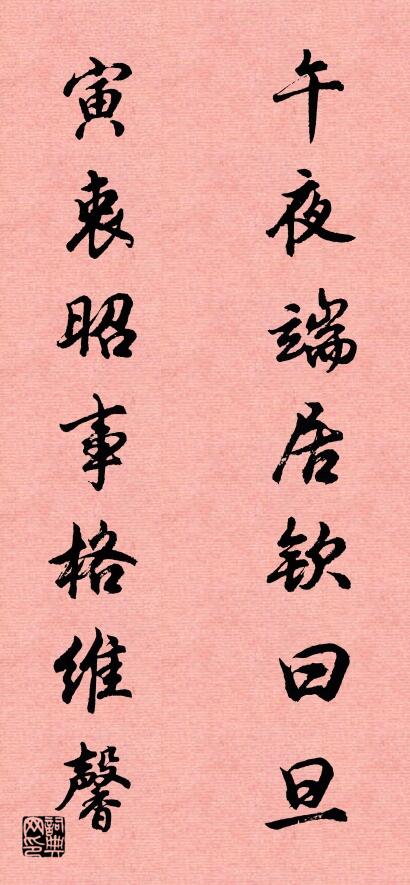 午夜端居钦曰旦
寅衷昭事格维馨
詞典网印